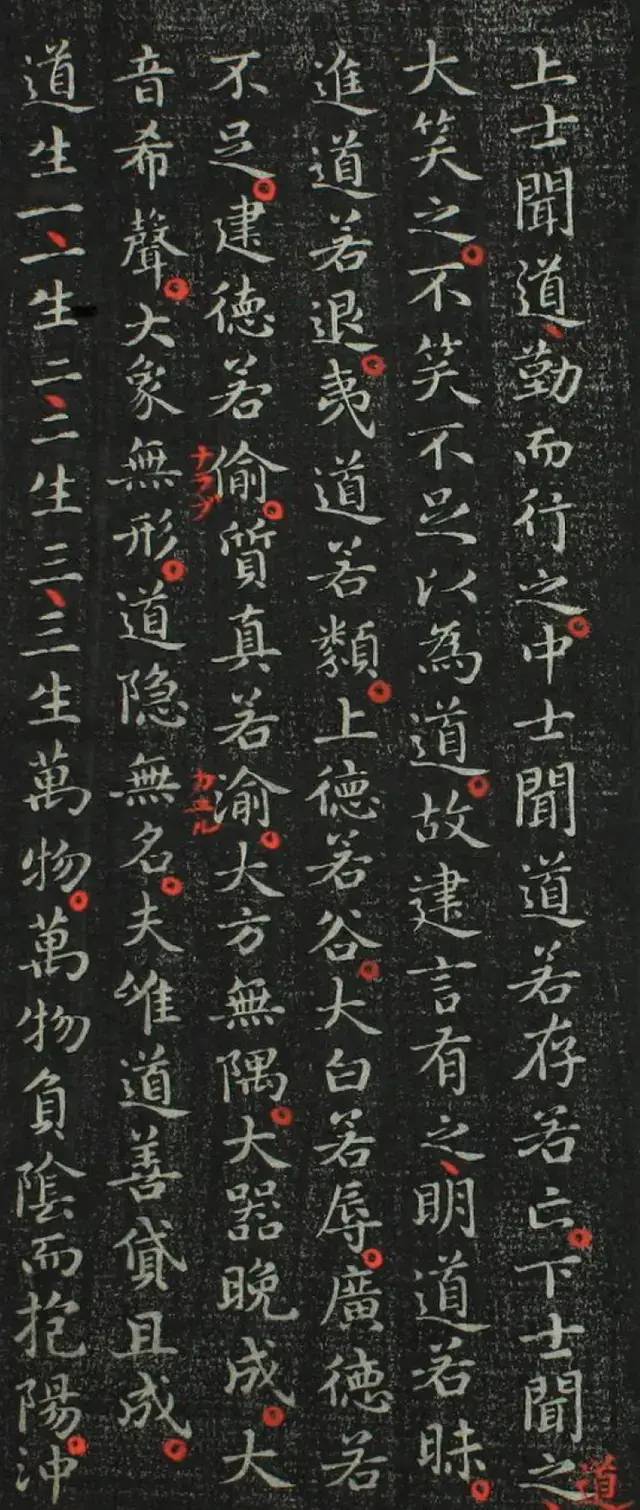 上士聞道、勤而行之。中士聞道若存若亡。下士聞之
道
大笑之。不笑不足以為道。故建言有之、明道若昧。
進道若退。夷道若纇。上德若谷。大白若辱。廣德若
不足。建德若偷。質真若渝。大方無隅。大器晚成。大
ナラブ
カユル
音希聲。大象無形。道隐無名。夫唯道善貸且成。
道生一、一生二、二生三、三生萬物。萬物負陰而抱陽。沖